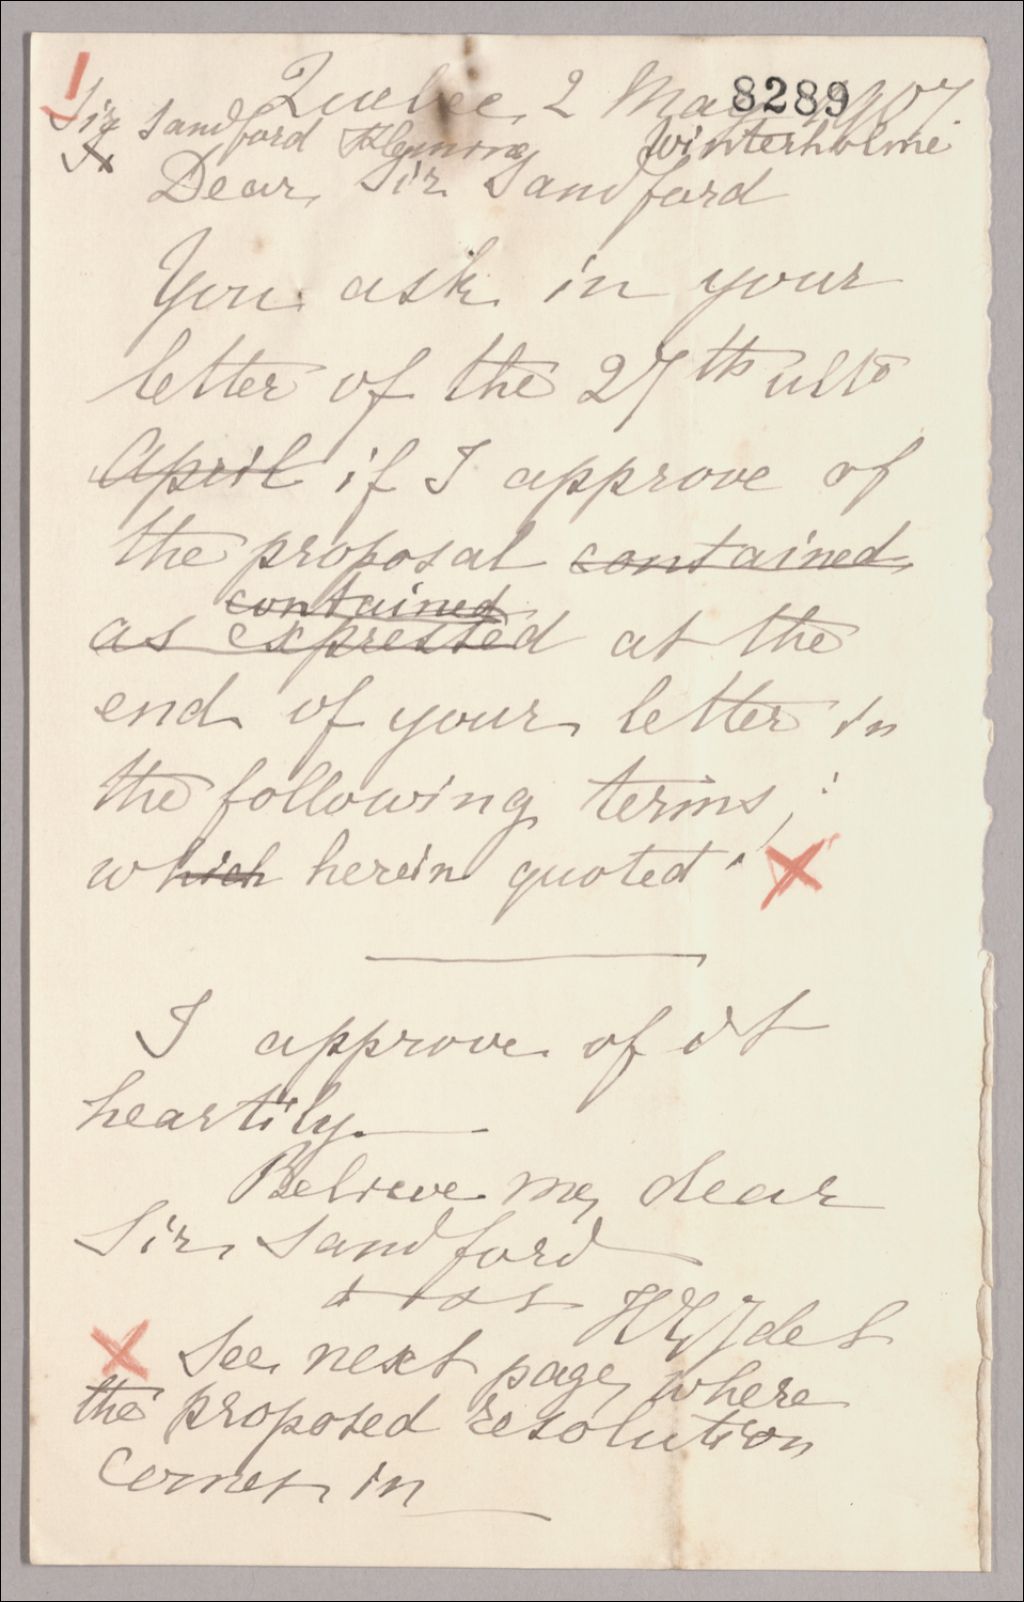 Quebec, 2 May 1907
8289
Sir Sandford Fleming Winterholme
Dear Sir Sandford
You ask in your
letter of the 27th ulto
April if I approve of
the proposal contained
contained
as expressed at the
end of your letter in
the following terms;
which herein quoted X
I approve of it
heartily.
Believe me, dear
Sir Sandford
X See next page, where
the proposed resolution
comes in